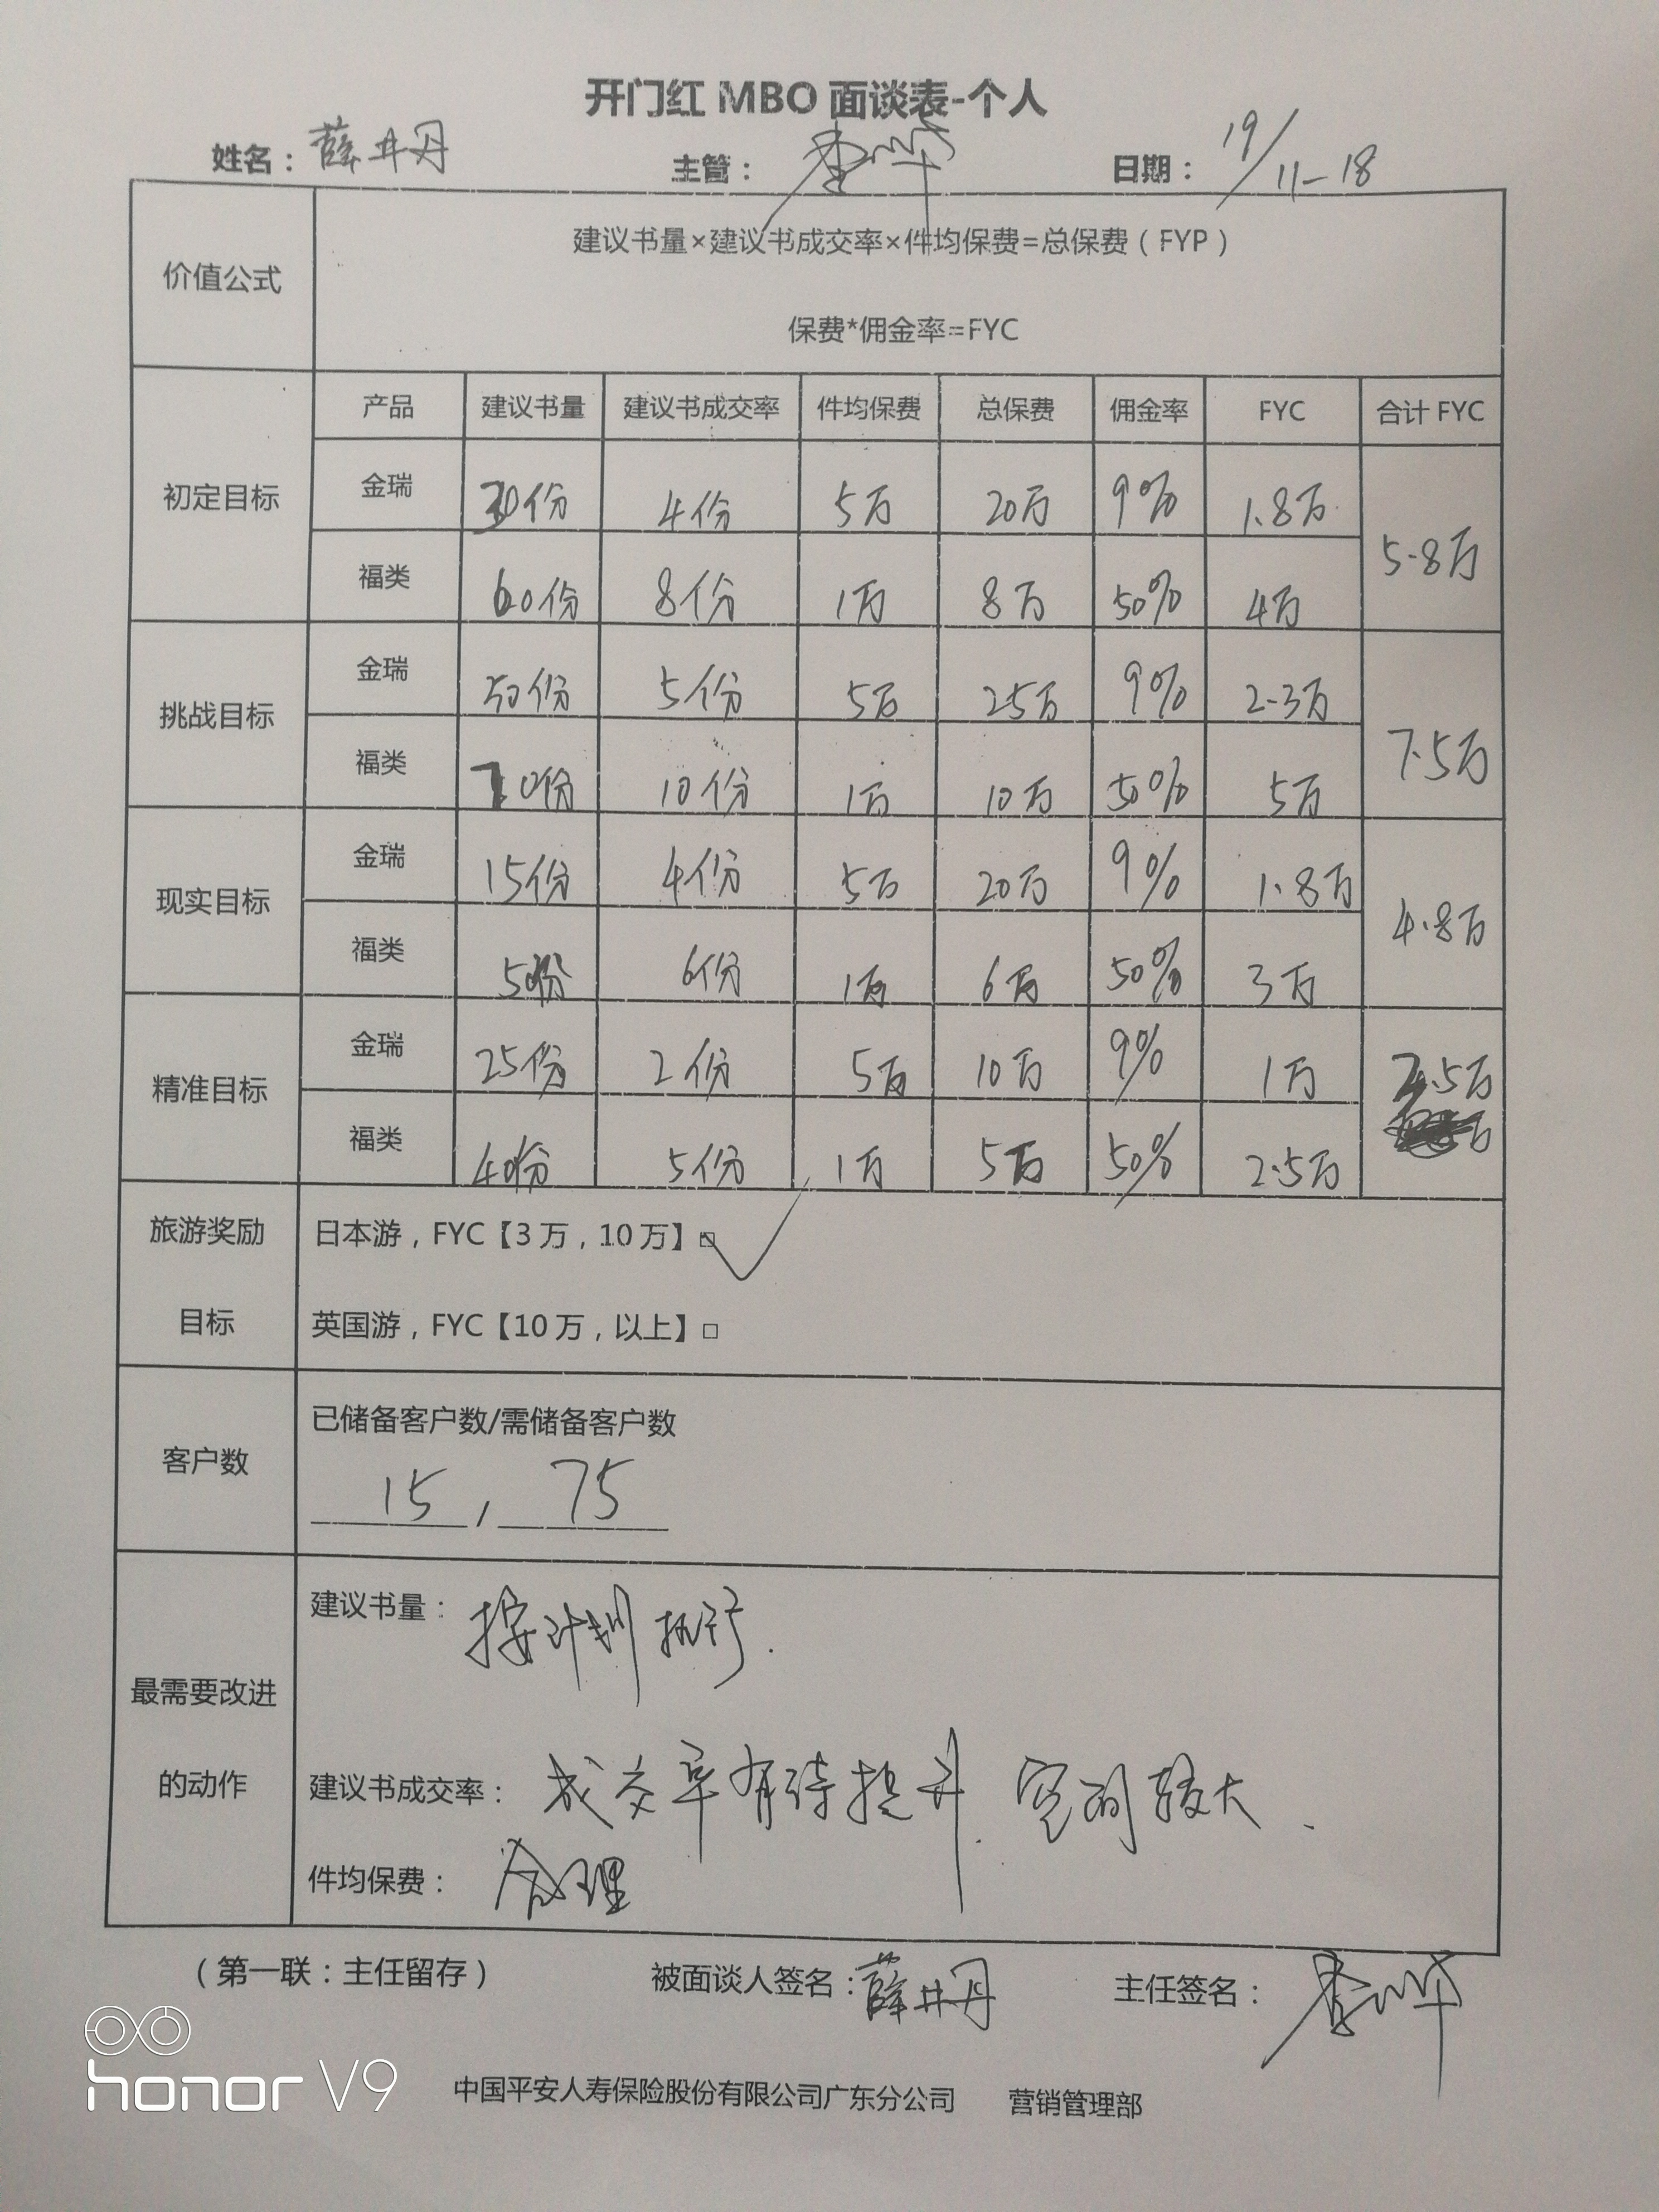 开门红 MBO 面谈表-个人
姓名：薛井丹 主管： 日期：19/11-18
价值公式
建议书量×建议书成交率×件均保费=总保费（FYP）
保费*佣金率=FYC
产品 建议书量 建议书成交率 件均保费 总保费 佣金率 FYC 合计 FYC
初定目标
金瑞 30份 4份 5万 20万 9% 1.8万
5.8万
福类 60份 8份 1万 8万 50% 4万
挑战目标
金瑞 50份 5份 5万 25万 9% 2.3万
7.5万
福类 70份 10份 1万 10万 50% 5万
现实目标
金瑞 15份 4份 5万 20万 9% 1.8万
4.8万
福类 50份 6份 1万 6万 50% 3万
精准目标
金瑞 25份 2份 5万 10万 9% 1万
.5万
福类 40份 5份 1万 5万 50% 2.5万
旅游奖励
目标
日本游，FYC【3万，10万】□✓
英国游，FYC【10万，以上】□
客户数
已储备客户数/需储备客户数
15 / 75
最需要改进
的动作
建议书量：按计划执行.
建议书成交率：成交率有待提升. 空间较大.
件均保费：合理
（第一联：主任留存） 被面谈人签名：薛井丹 主任签名：
honor V9
中国平安人寿保险股份有限公司广东分公司 营销管理部